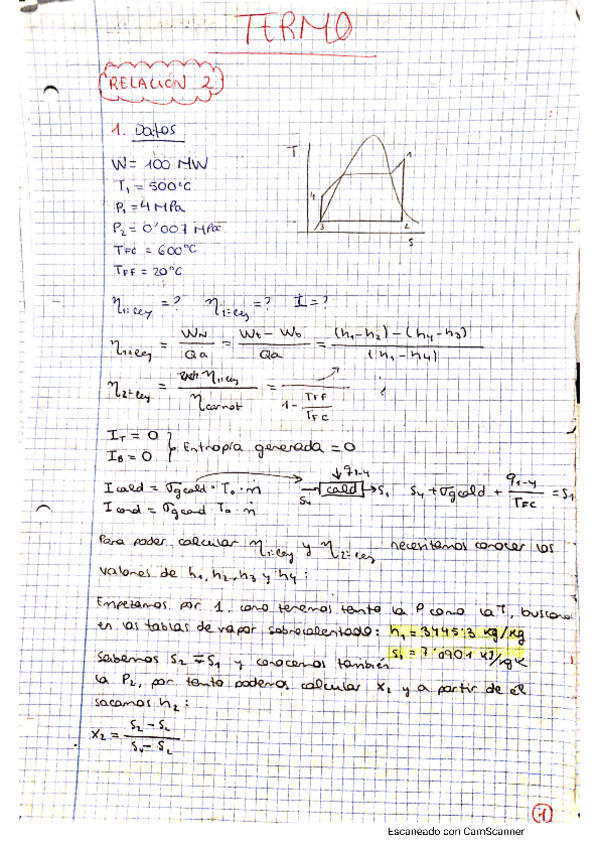 TERMO
RELACIÓN 2
1. Datos
W = 100 MW
T₁ = 500°C
P₁ = 4 MPa
P₂ = 0'007 MPa
TFC = 600°C
TFF = 20°C
T
1
4
3
2
S
η1=ley = ? η1=ley = ? I = ?
η1=ley = WN/Qa = Wt - Wb/Qa = (h₁-h₂)-(h₄-h₃)/(h₁-h₄)
η2=ley = η1=ley/ηcarnot = /1 - TFF/TFC ;
IT = 0
IB = 0 } Entropía generada = 0
Icald = σgcald · T₀ · ṁ
Icond = σgcond T₀ · ṁ
S₄ → cald → S₁ S₄ + σgcald + q₁₋₄/TFC = S₁
Para poder calcular η1=ley y η2=ley necesitamos conocer los
valores de h₁, h₂, h₃ y h₄ :
Empezamos por 1, como tenemos tanto la P como la T, buscamos
en las tablas de vapor sobrecalentado: h₁ = 3445'3 kg/kg
S₁ = 7'0901 kJ/kgK
Sabemos S₂ = S₁ y conocemos también
la P₂, por tanto podemos calcular X₂ y a partir de él
sacamos h₂ :
X₂ = S₂ - SL/Sv - SL
Escaneado con CamScanner